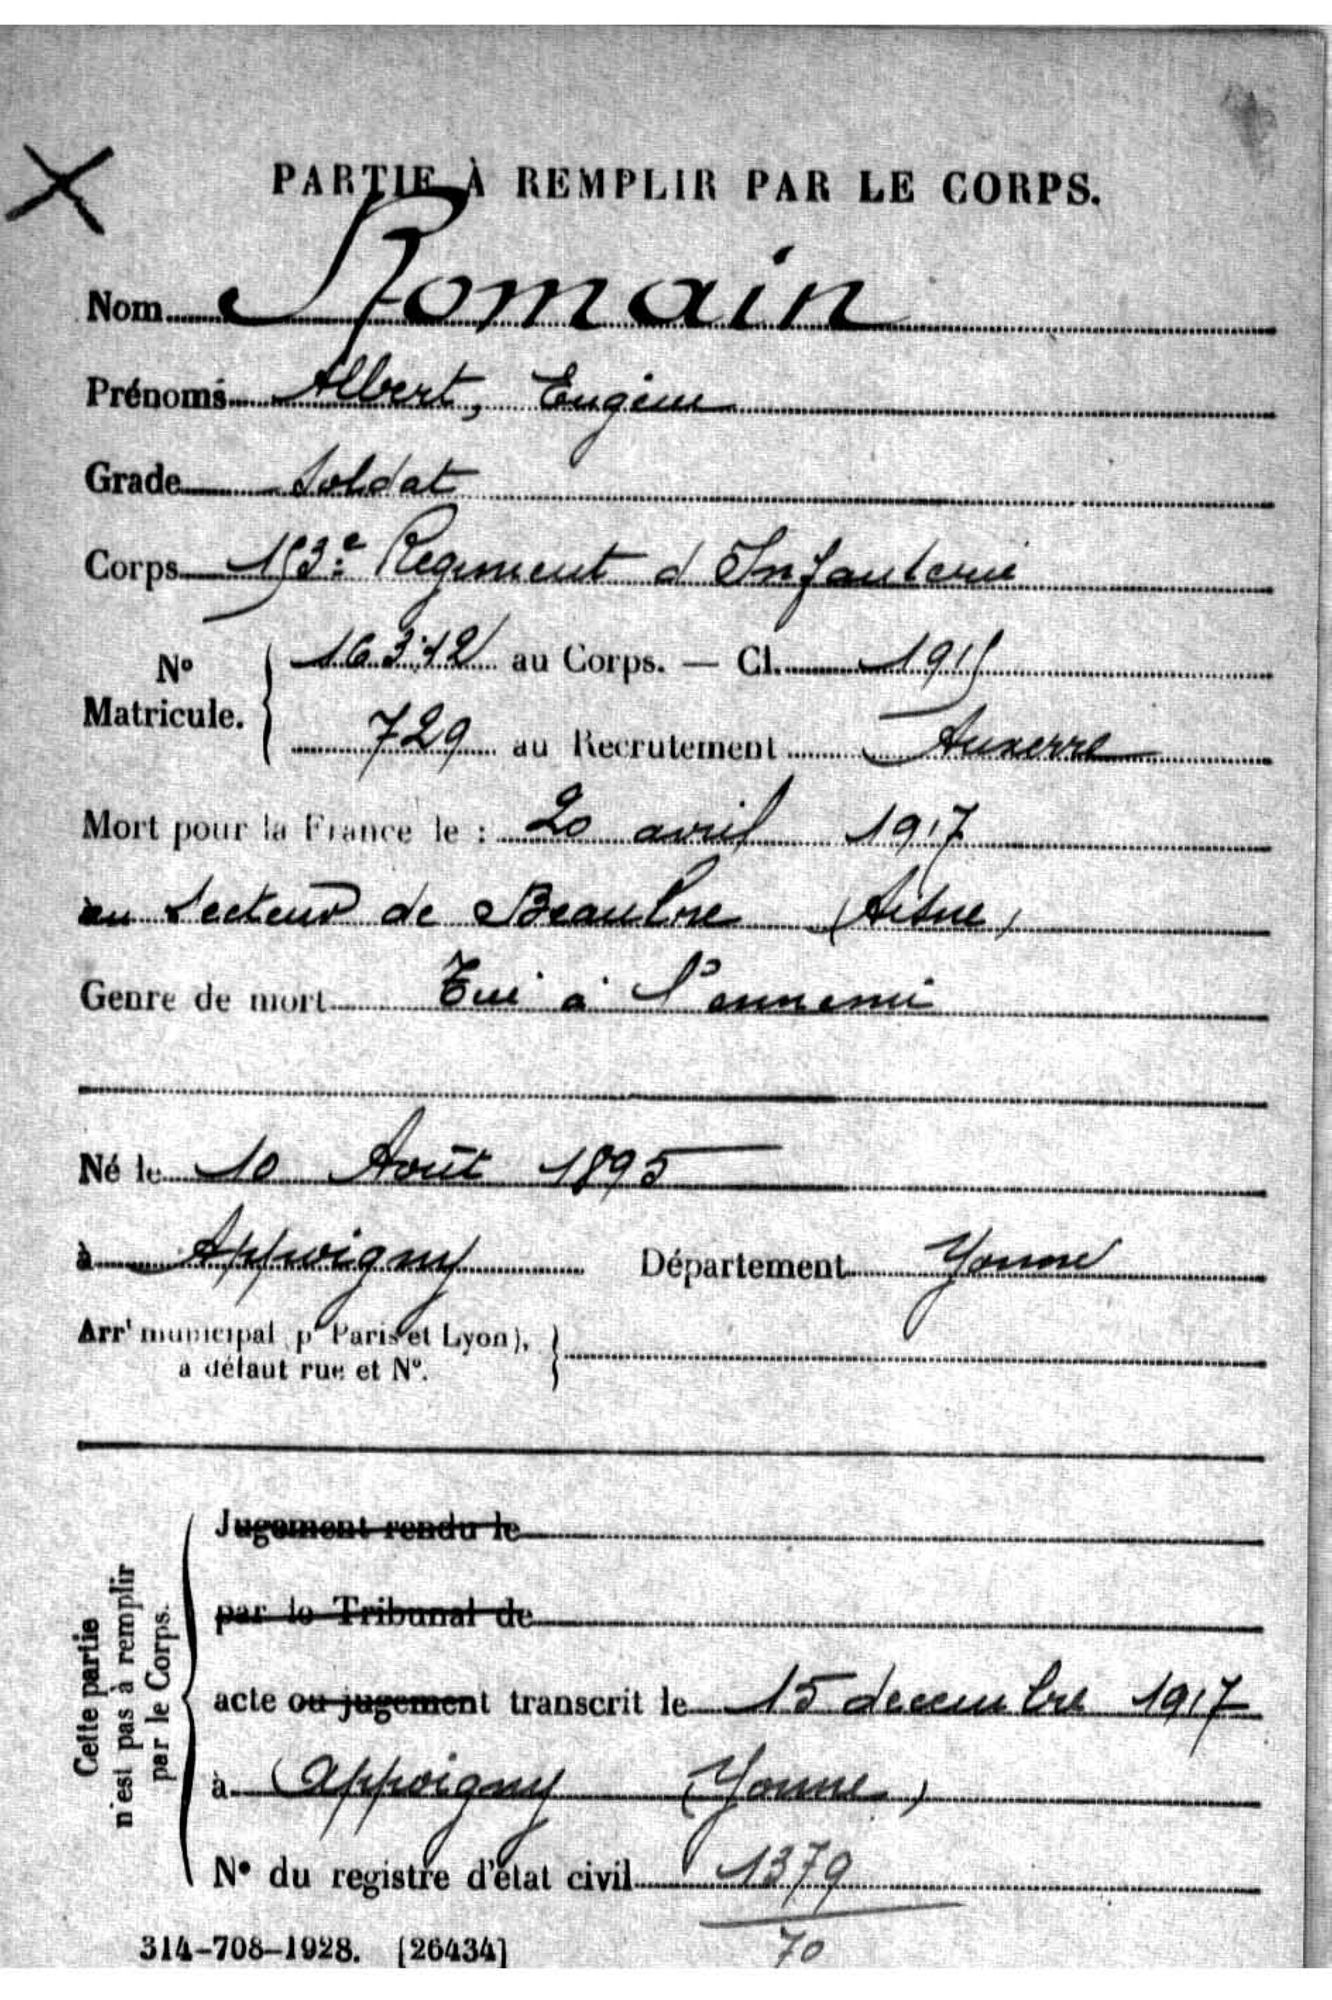 PARTIE À REMPLIR PAR LE CORPS.
Nom Romain
Prénoms Albert, Eugène
Grade Soldat
Corps 153e Régiment d'Infanterie
No Matricule. 16342 au Corps. — Cl. 1915
729 au Recrutement Auxerre
Mort pour la France le : 20 avril 1917
au secteur de Beaulne (Aisne)
Genre de mort Tué à l'ennemi
Né le 10 Août 1895
à Appoigny Département Yonne
Arrt municipal (pr Paris et Lyon),
à défaut rue et No.
Cette partie n'est pas à remplir par le Corps.
Jugement rendu le
par le Tribunal de
acte ou jugement transcrit le 15 décembre 1917
à Appoigny (Yonne)
No du registre d'état civil 1379
70
314-708-1928. [26434]